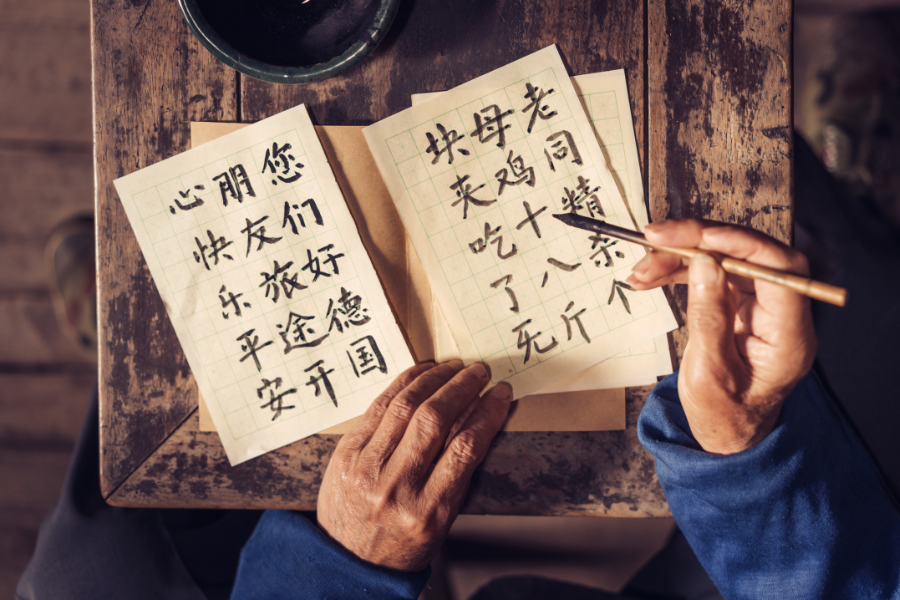 老同精杀个
母鸡十八斤
块夹吃了无
您们好德国
朋友旅途开
心快乐平安